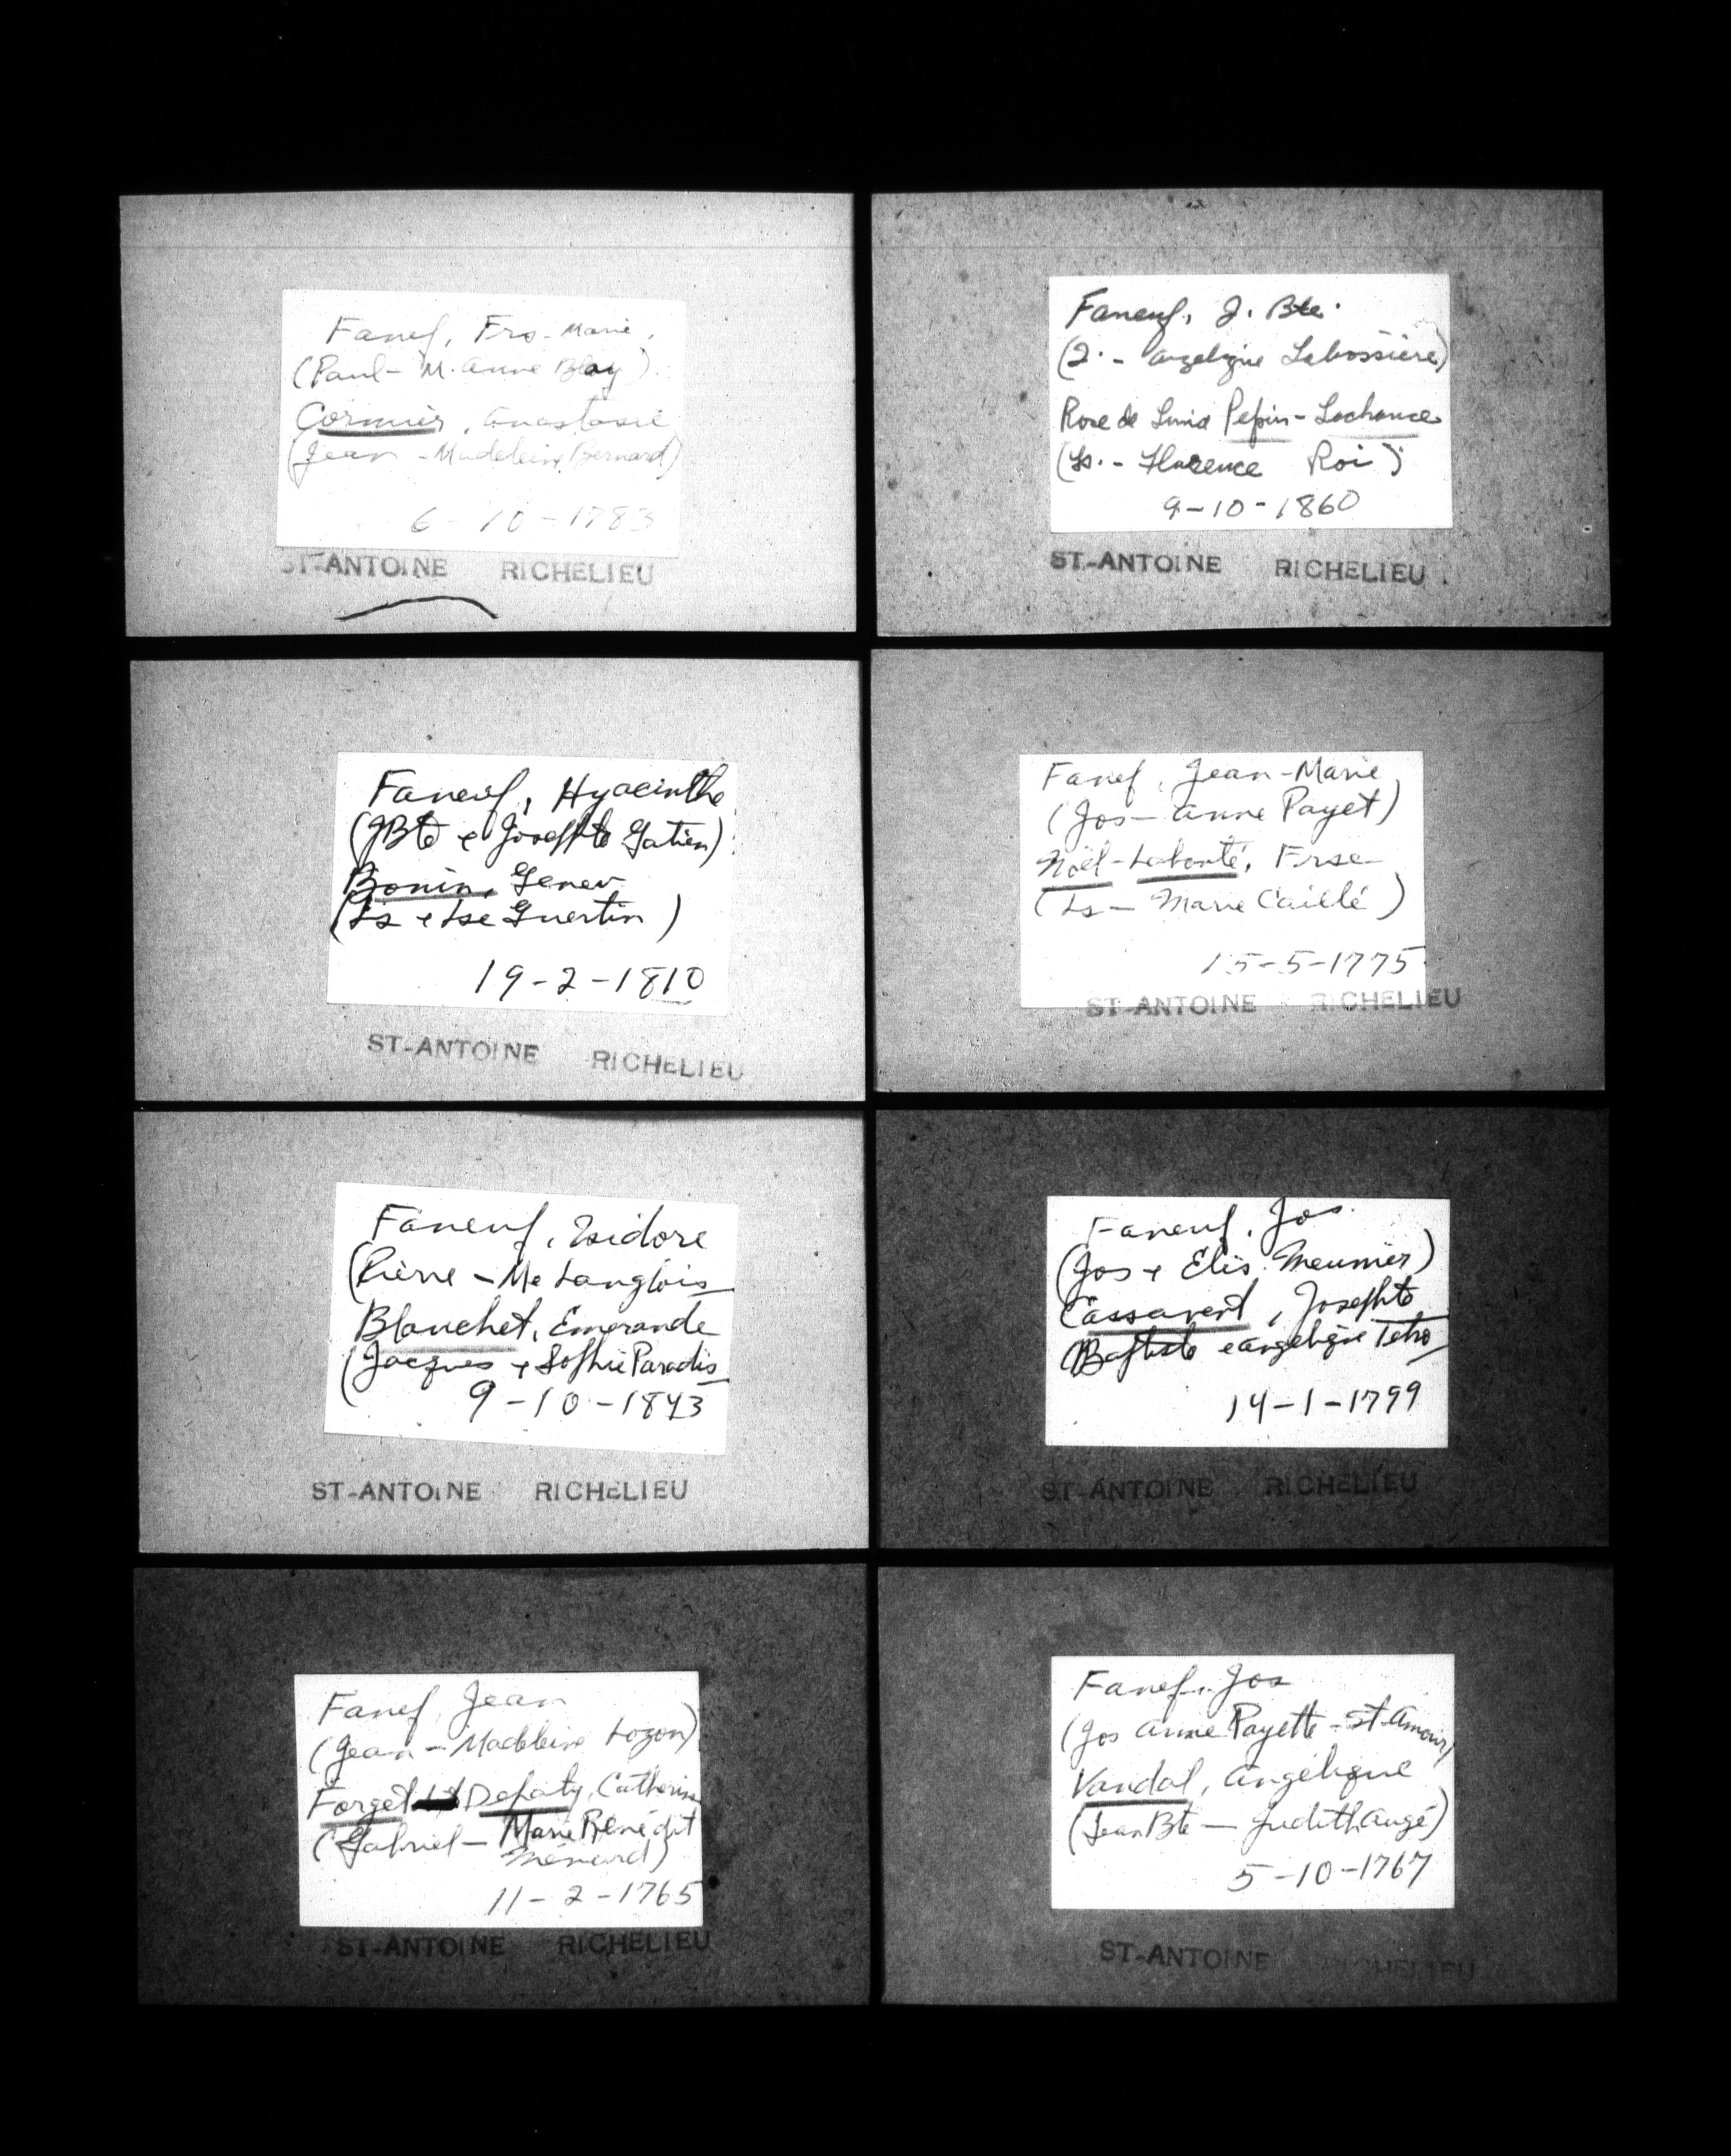 Fanef, Frs-Marie,
(Paul - M. Anne Blay)
Cormier, Anastasie
(Jean - Madeleine Bernard)
6-10-1783
ST-ANTOINE RICHELIEU
Faneuf, J. Bte.
(2. - Angelique Labossière)
Rose de Lima Pepin-Lachance
(Ls. - Florence Roi)
9-10-1860
ST-ANTOINE RICHELIEU
Faneuf, Hyacinthe
(JBte & Josephte Gatien)
Bonin, Genev
(Ls & Lse Guertin)
19-2-1810
ST-ANTOINE RICHELIEU
Fanef, Jean-Marie,
(Jos - Anne Payet)
Noël-Labonté, Frse
(Ls - Marie Caillé)
15-5-1775
ST-ANTOINE RICHELIEU
Faneuf, Isidore
(Pierre - Me Langlois
Blanchet, Emerande
(Jacques & Sophie Paradis
9-10-1843
ST-ANTOINE RICHELIEU
Faneuf, Jos.
(Jos & Elis. Meunier)
Cassavent, Josephte
(Baptiste & Angelique Tetro
14-1-1799
ST-ANTOINE RICHELIEU
Fanef, Jean
(Jean - Madeleine Lozon)
Forget Depaty, Catherine
(Gabriel - Marie Bénédict
Ménard)
11-2-1765
ST-ANTOINE RICHELIEU
Fanef, Jos
(Jos Anne Payette - St-Amour)
Vandal, Angélique
(Jean Bte - Judith Augé)
5-10-1767
ST-ANTOINE RICHELIEU